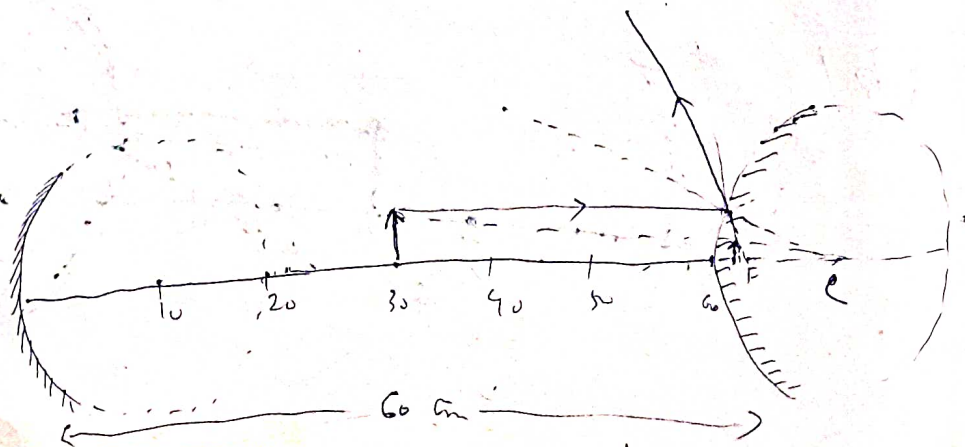 10 20 30 40 50 60
F
C
60 cm